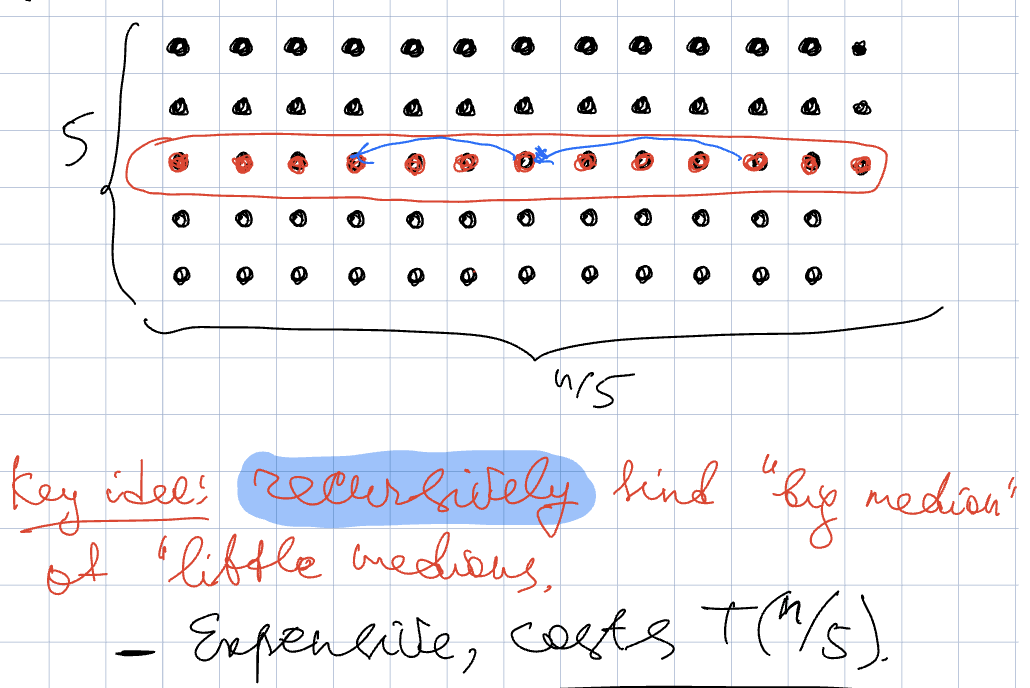 5
n/5
Key idea: recursively find "big median"
of "little medians.
- Expensive, costs T(n/5).